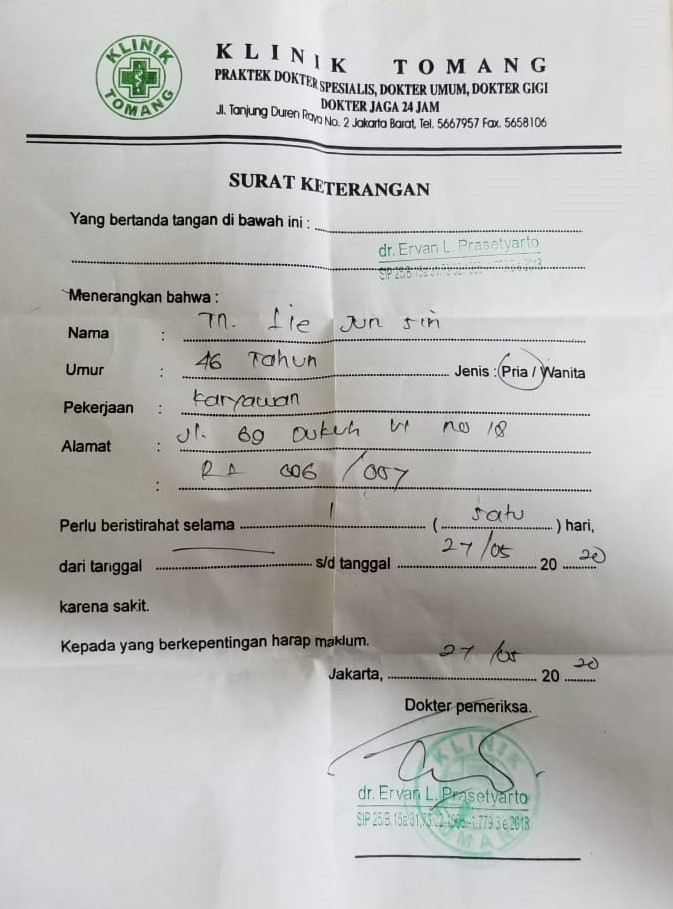 KLINIK
TOMANG
KLINIK TOMANG
PRAKTEK DOKTER SPESIALIS, DOKTER UMUM, DOKTER GIGI
DOKTER JAGA 24 JAM
Jl. Tanjung Duren Raya No. 2 Jakarta Barat, Tel. 5667957 Fax. 5658106
SURAT KETERANGAN
Yang bertanda tangan di bawah ini :
dr. Ervan L. Prasetyarto
Menerangkan bahwa :
Nama : Tn. Lie Jun Sin
Umur : 46 Tahun Jenis : Pria / Wanita
Pekerjaan : Karyawan
Alamat : Jl. no 18
: 006 /007
Perlu beristirahat selama 1 ( satu ) hari,
dari tanggal s/d tanggal 27/05 20 20
karena sakit.
Kepada yang berkepentingan harap maklum.
Jakarta, 27/05 20 20
Dokter pemeriksa.
KLINIK
dr. Ervan L. Prasetyarto